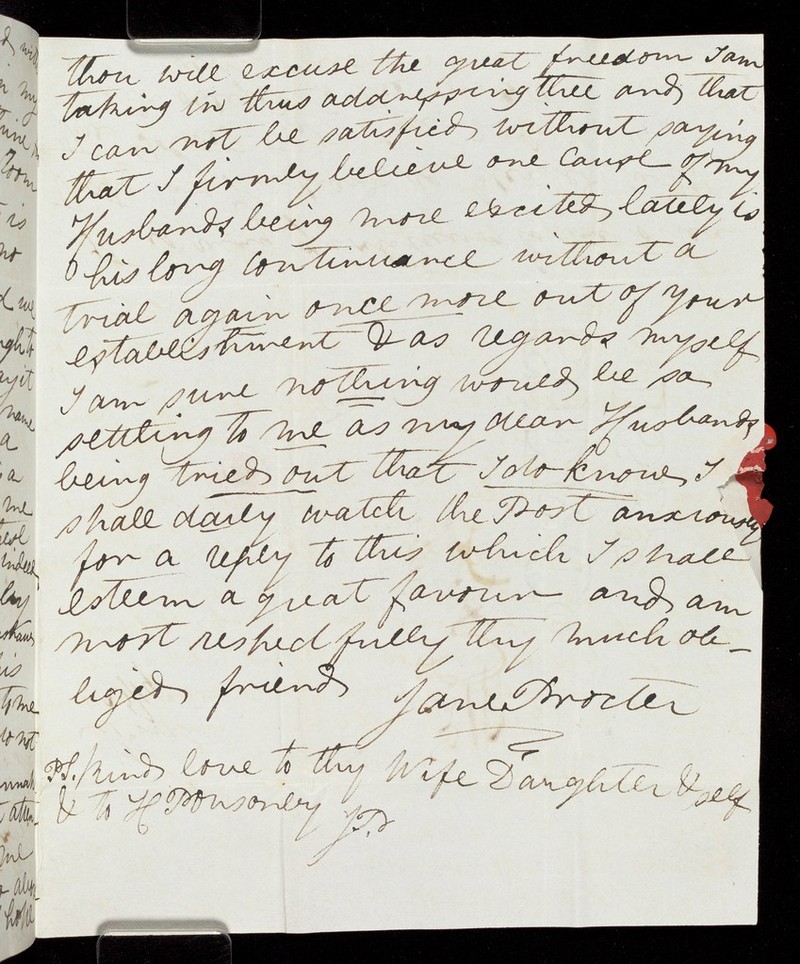 thou will excuse the great freedom I am
taking in thus addressing thee and that
I can not be satisfied without saying
that I firmly believe one Cause of my
Husbands being more excited lately is
his long continuance without a
trial again once more out of your
establishment & as regards myself
I am sure nothing would be so
settling to me as my dear Husbands
being tried out that I do know, I
shall daily watch the Post anxiously
for a reply to this which I shall
esteem a great favour and am
most respectfully thy much ob-
liged friend Jane Procter
PS. / kind love to thy Wife Daughter & self
& to H Ponsonby
JP